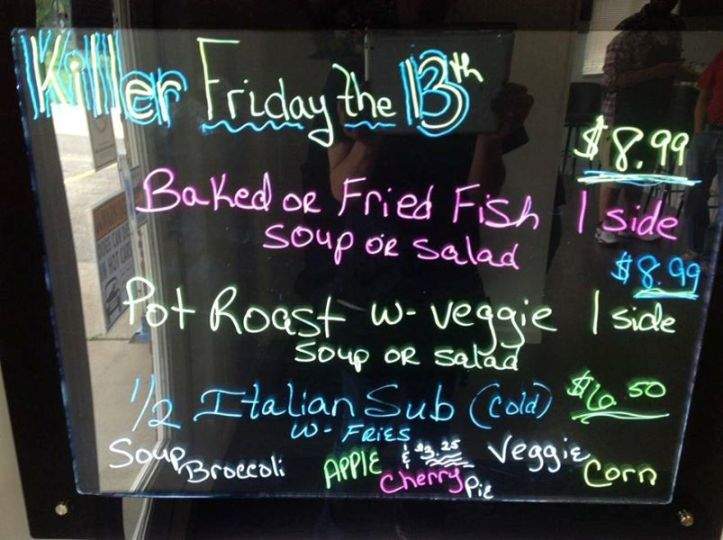 Killer Friday the 13th
$8.99
Baked or Fried Fish 1 side
soup or salad
$8.99
Pot Roast w- veggie 1 side
soup or salad
1/2 Italian Sub (cold) $6.50
w- FRIES
Soup Broccoli APPLE & Cherry Pie $3.25 Veggie Corn